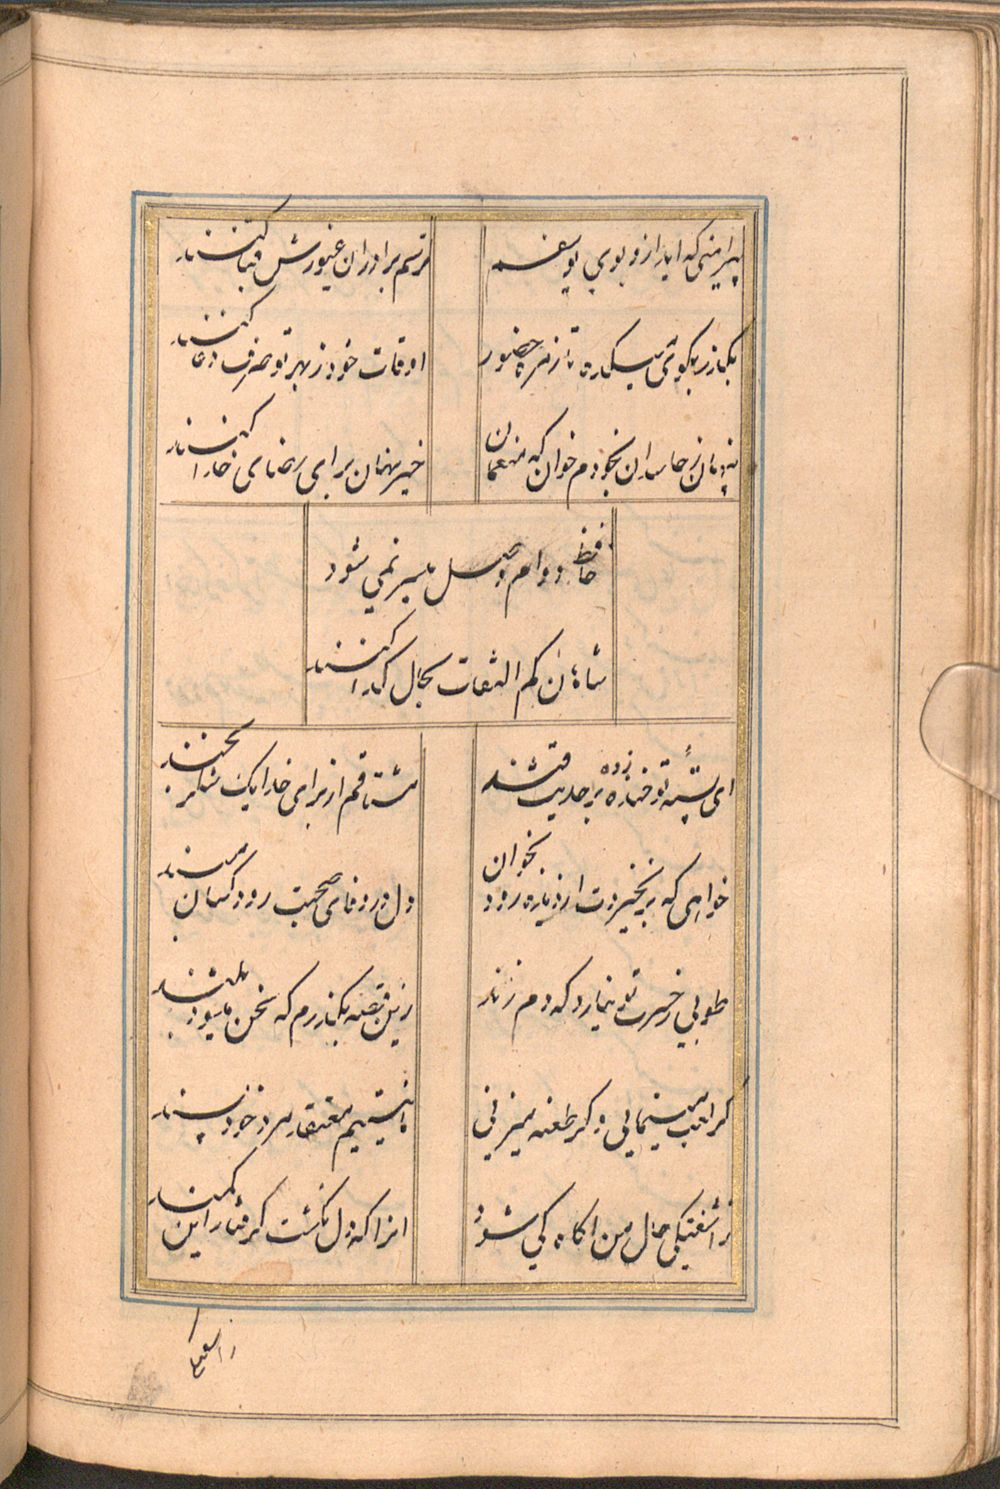 پیراهنی که آید ازو بوی یوسفم
ترسم برادران غیورش قبا کنند
بگذر بکوی میکده تا زمره حضور
اوقات خود ز بهر تو صرف دعا کنند
پنهان ز حاسدان بخودم خوان که منعمان
خیر نهان برای رضای خدا کنند
حافظ دوام وصل میسر نمی شود
شاهان کم التفات بحال گدا کنند
ای پسته تو خنده زده بر حدیث قند
مشتاقم از برای خدا یک شکر بخند
خواهی که بر نخیزدت از دیده رود خون
دل در وفای صحبت رود کسان مبند
طوبی ز حسرت تو نیارد که دم زند
زین قصه بگذرم که سخن میشود بلند
گر جلوه مینمایی و گر طعنه میزنی
ما نیستیم معتقد مرد خودپسند
ز آشفتگی حال من آگاه کی شود
آنرا که دل نگشت گرفتار این کمند